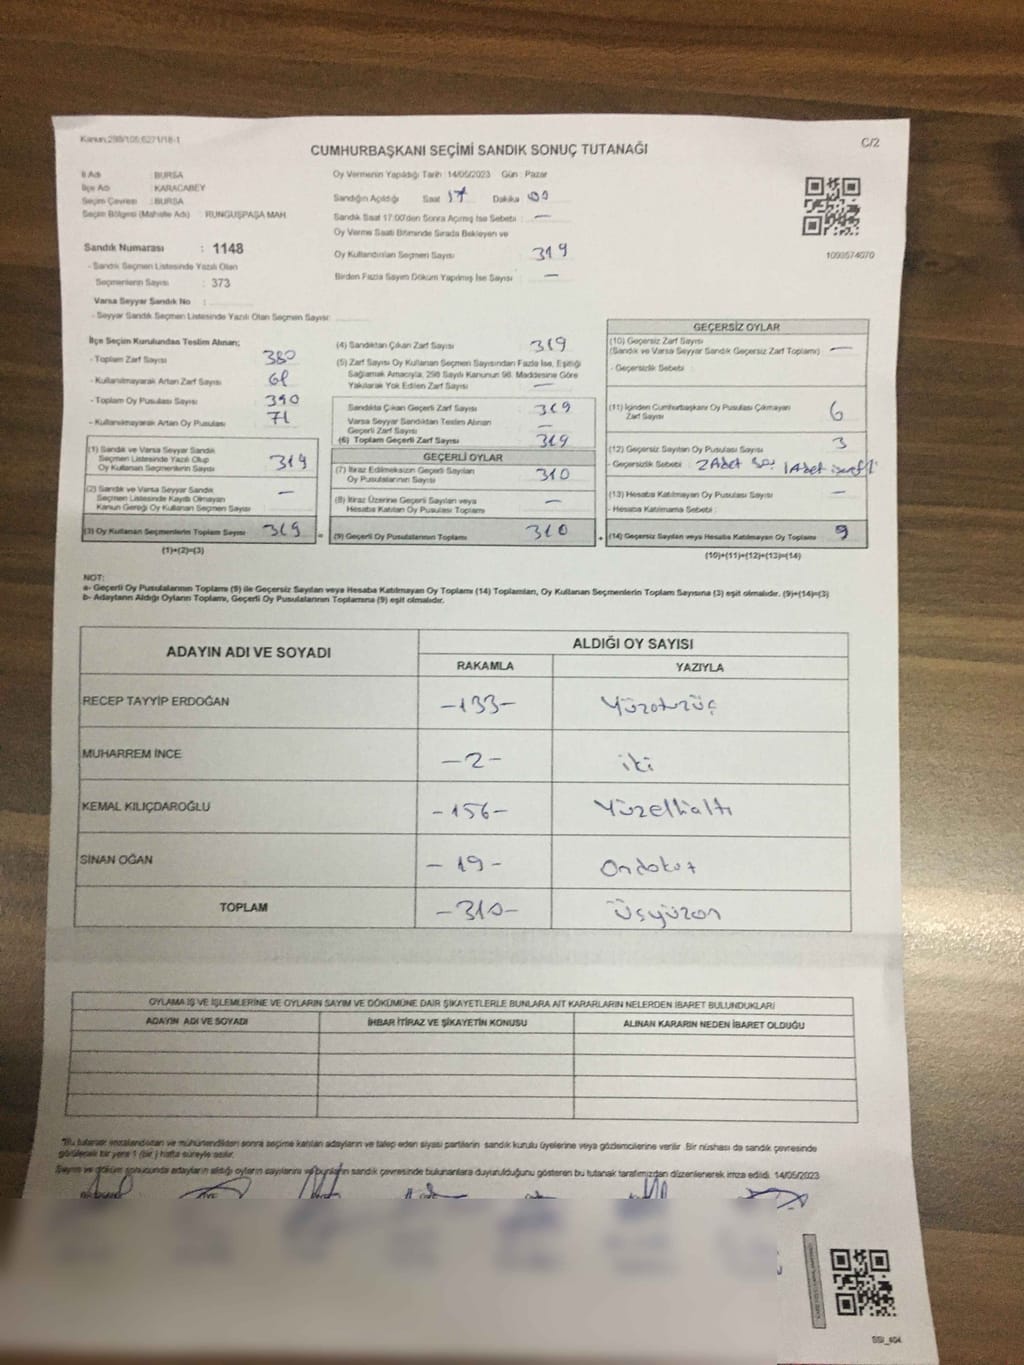 Kanun:298/105;6271/18-1
C/2
CUMHURBAŞKANI SEÇİMİ SANDIK SONUÇ TUTANAĞI
İl Adı : BURSA
İlçe Adı : KARACABEY
Seçim Çevresi : BURSA
Seçim Bölgesi (Mahalle Adı) : RUNGUŞPAŞA MAH.
Sandık Numarası : 1148
- Sandık Seçmen Listesinde Yazılı Olan
Seçmenlerin Sayısı : 373
Varsa Seyyar Sandık No :
- Seyyar Sandık Seçmen Listesinde Yazılı Olan Seçmen Sayısı:
Oy Vermenin Yapıldığı Tarih : 14/05/2023 Gün : Pazar
Sandığın Açıldığı Saat 17 Dakika 00
Sandık Saat 17:00'den Sonra Açılmış İse Sebebi : —
Oy Verme Saati Bitiminde Sırada Bekleyen ve
Oy Kullandırılan Seçmen Sayısı 319
Birden Fazla Sayım Döküm Yapılmış İse Sayısı —
1093574070
İlçe Seçim Kurulundan Teslim Alınan;
- Toplam Zarf Sayısı 380
- Kullanılmayarak Artan Zarf Sayısı 61
- Toplam Oy Pusulası Sayısı 390
- Kullanılmayarak Artan Oy Pusulası 71
(1) Sandık ve Varsa Seyyar Sandık
Seçmen Listesinde Yazılı Olup
Oy Kullanan Seçmenlerin Sayısı 319
(2) Sandık ve Varsa Seyyar Sandık
Seçmen Listesinde Kayıtlı Olmayan
Kanun Gereği Oy Kullanan Seçmen Sayısı —
(3) Oy Kullanan Seçmenlerin Toplam Sayısı 319
(1)+(2)=(3)
(4) Sandıktan Çıkan Zarf Sayısı 319
(5) Zarf Sayısı Oy Kullanan Seçmen Sayısından Fazla İse, Eşitliği
Sağlamak Amacıyla, 298 Sayılı Kanunun 98. Maddesine Göre
Yakılarak Yok Edilen Zarf Sayısı —
Sandıkta Çıkan Geçerli Zarf Sayısı 319
Varsa Seyyar Sandıktan Teslim Alınan
Geçerli Zarf Sayısı —
(6) Toplam Geçerli Zarf Sayısı 319
GEÇERLİ OYLAR
(7) İtiraz Edilmeksizin Geçerli Sayılan
Oy Pusulalarının Sayısı 310
(8) İtiraz Üzerine Geçerli Sayılan veya
Hesaba Katılan Oy Pusulası Toplamı —
= (9) Geçerli Oy Pusulalarının Toplamı 310
GEÇERSİZ OYLAR
(10) Geçersiz Zarf Sayısı
(Sandık ve Varsa Seyyar Sandık Geçersiz Zarf Toplamı) —
- Geçersizlik Sebebi :
(11) İçinden Cumhurbaşkanı Oy Pusulası Çıkmayan
Zarf Sayısı 6
(12) Geçersiz Sayılan Oy Pusulası Sayısı 3
- Geçersizlik Sebebi : 2 Adet 1 Adet
(13) Hesaba Katılmayan Oy Pusulası Sayısı —
- Hesaba Katılmama Sebebi :
+ (14) Geçersiz Sayılan veya Hesaba Katılmayan Oy Toplamı 9
(10)+(11)+(12)+(13)=(14)
NOT:
a- Geçerli Oy Pusulalarının Toplamı (9) ile Geçersiz Sayılan veya Hesaba Katılmayan Oy Toplamı (14) Toplamları, Oy Kullanan Seçmenlerin Toplam Sayısına (3) eşit olmalıdır. (9)+(14)=(3)
b- Adayların Aldığı Oyların Toplamı, Geçerli Oy Pusulalarının Toplamına (9) eşit olmalıdır.
ADAYIN ADI VE SOYADI
ALDIĞI OY SAYISI
RAKAMLA YAZIYLA
RECEP TAYYİP ERDOĞAN -133- Yüzotuzüç
MUHARREM İNCE -2- iki
KEMAL KILIÇDAROĞLU -156- Yüzellialtı
SİNAN OĞAN -19- Ondokuz
TOPLAM -310- Üçyüzon
OYLAMA İŞ VE İŞLEMLERİNE VE OYLARIN SAYIM VE DÖKÜMÜNE DAİR ŞİKAYETLERLE BUNLARA AİT KARARLARIN NELERDEN İBARET BULUNDUKLARI
ADAYIN ADI VE SOYADI İHBAR İTİRAZ VE ŞİKAYETİN KONUSU ALINAN KARARIN NEDEN İBARET OLDUĞU
*Bu tutanak imzalandıktan ve mühürlendikten sonra seçime katılan adayların ve talep eden siyasi partilerin sandık kurulu üyelerine veya gözlemcilerine verilir. Bir nüshası da sandık çevresinde
görülecek bir yere 1 (bir) hafta süreyle asılır.
Sayım ve döküm sonucunda adayların aldığı oyların sayılarını ve bunların sandık çevresinde bulunanlara duyurulduğunu gösteren bu tutanak tarafımızdan düzenlenerek imza edildi. 14/05/2023
SSI_404